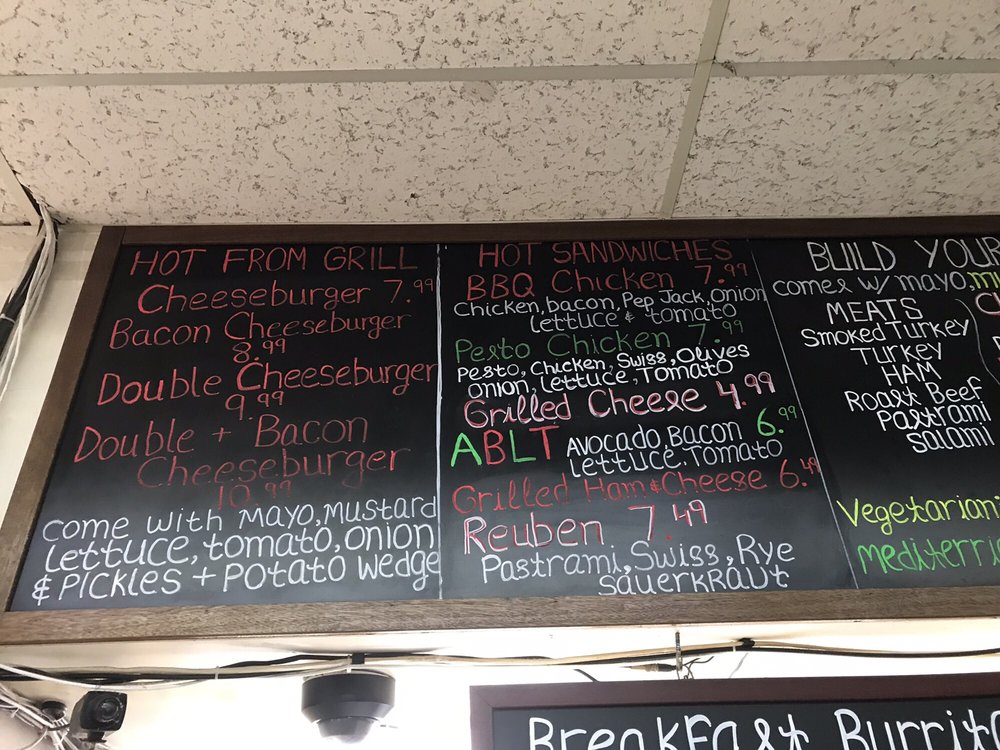 HOT FROM GRILL
Cheeseburger 7.99
Bacon Cheeseburger
8.99
Double Cheeseburger
9.99
Double + Bacon
Cheeseburger
10.99
come with Mayo, Mustard
Lettuce, tomato, onion
& Pickles + Potato Wedge
HOT SANDWICHES
BBQ Chicken 7.99
Chicken, bacon, Pep Jack, onion
lettuce & tomato
Pesto Chicken 7.99
Pesto, Chicken, Swiss, Olives
onion, Lettuce, Tomato
Grilled Cheese 4.99
ABLT Avocado, Bacon 6.99
Lettuce, Tomato
Grilled Ham & Cheese 6.49
Reuben 7.49
Pastrami, Swiss, Rye
Sauerkraut
BUILD YOUR
comes w/ mayo,
MEATS
Smoked Turkey
Turkey
HAM
Roast Beef
Pastrami
Salami
Vegetarian
Breakfast